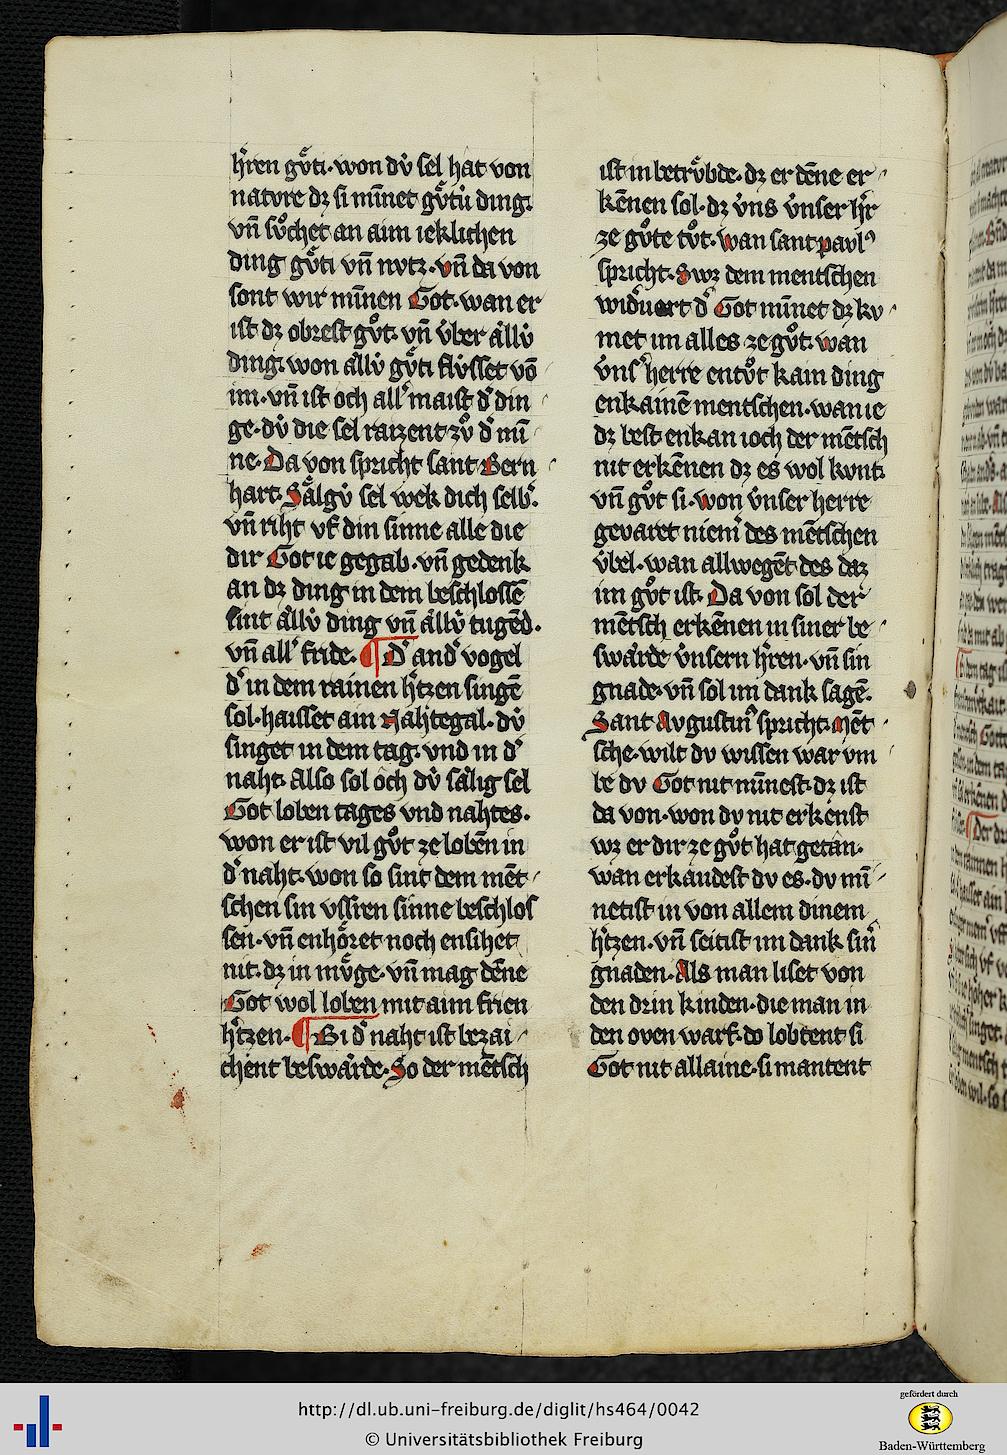 hˀren gvͤti· won dv̍ sel hat von
natvre dz si min̄et gvͤtu̍ ding.
vn̄ svͦchet an aim ieklichen
ding gvͤti vn̄ nvtz· vn̄ da von
sont wir min̄en Got· wan er
ist dz obrest gvͦt· vn̄ v̍ber aͤllv̍
ding· won aͤllv̍ gvͤti flv̍sset vō
im· vn̄ ist och allˀ maist dˀ din
ge· dv̍ die sel raizent zvͦ dˀ mī
ne· Da von spricht sant Bern
hart· Saͤlgv̍ sel wek dich selbˀ.
vn̄ riht vf din sinne alle die
dir Got ie gegab· vn̄ gedenk
an dz ding in dem beschlossē
sint aͤllv̍ ding vn̄ aͤllv̍ tugēd·
vn̄ allˀ fride· ¶ Dˀ andˀ vogel
dˀ in dem rainen hˀtzen singē
sol· haisset ain Nahtegal· dv̍
singet in dem tag· vnd in dˀ
naht· Also sol och dv̍ saͤlig sel
Got loben tages vnd nahtes·
won er ist vil gvͦt ze loben in
dˀ naht· won so sint dem mēt
schen sin vssren sinne beschlos
sen· vn̄ enhoͤret noch ensihet
nit· dz in mvͤge· vn̄ mag dēne
Got wol loben mit aim frien
hˀtzen· ¶ Bi dˀ naht ist bezai
chent beswaͤrde· So der mētsch
ist in betrvͤbde· dz er dēne er
kēnen sol· dz v̍ns v̍nser hˀr
ze gvͦte tvͦt· wan sant pavlꝰ
spricht· Swz dem mentschen
widˀuert dˀ Got min̄et dz kv
met im alles ze gvͦt· wan
v̍nsˀ herre entvͦt kain ding
enkainē mentschen· wan ie
dz best enkan ioch der mētsch
nit erkēnen dz es wol kvnt·
vn̄ gvͦt si· won v̍nser herre
gevaret niemˀ des mētschen
v̍bel· wan allwegēt des daz
im gvͦt ist· Da von sol der
mētsch erkēnen in siner be
swaͤrde v̍nsern hˀren· vn̄ sin
gnade· vn̄ sol im dank sagē·
Sant Avgustinꝰ spricht· Mēt
sche· wilt dv wissen war vm
be dv Got nit min̄est· dz ist
da von· won dv nit erkenst
wz er dir ze gvͦt hat getan·
wan erkandest dv es· dv mī
netist in von allem dinem
hˀtzen· vn̄ seitist im dank sinˀ
gnaden· Als man liset von
den drin kinden· die man in
den oven warf· do lobtent si
Got nit allaine· si mantent
http://dl.ub.uni-freiburg.de/diglit/hs464/0042
© Universitätsbibliothek Freiburg
gefördert durch
Baden-Württemberg